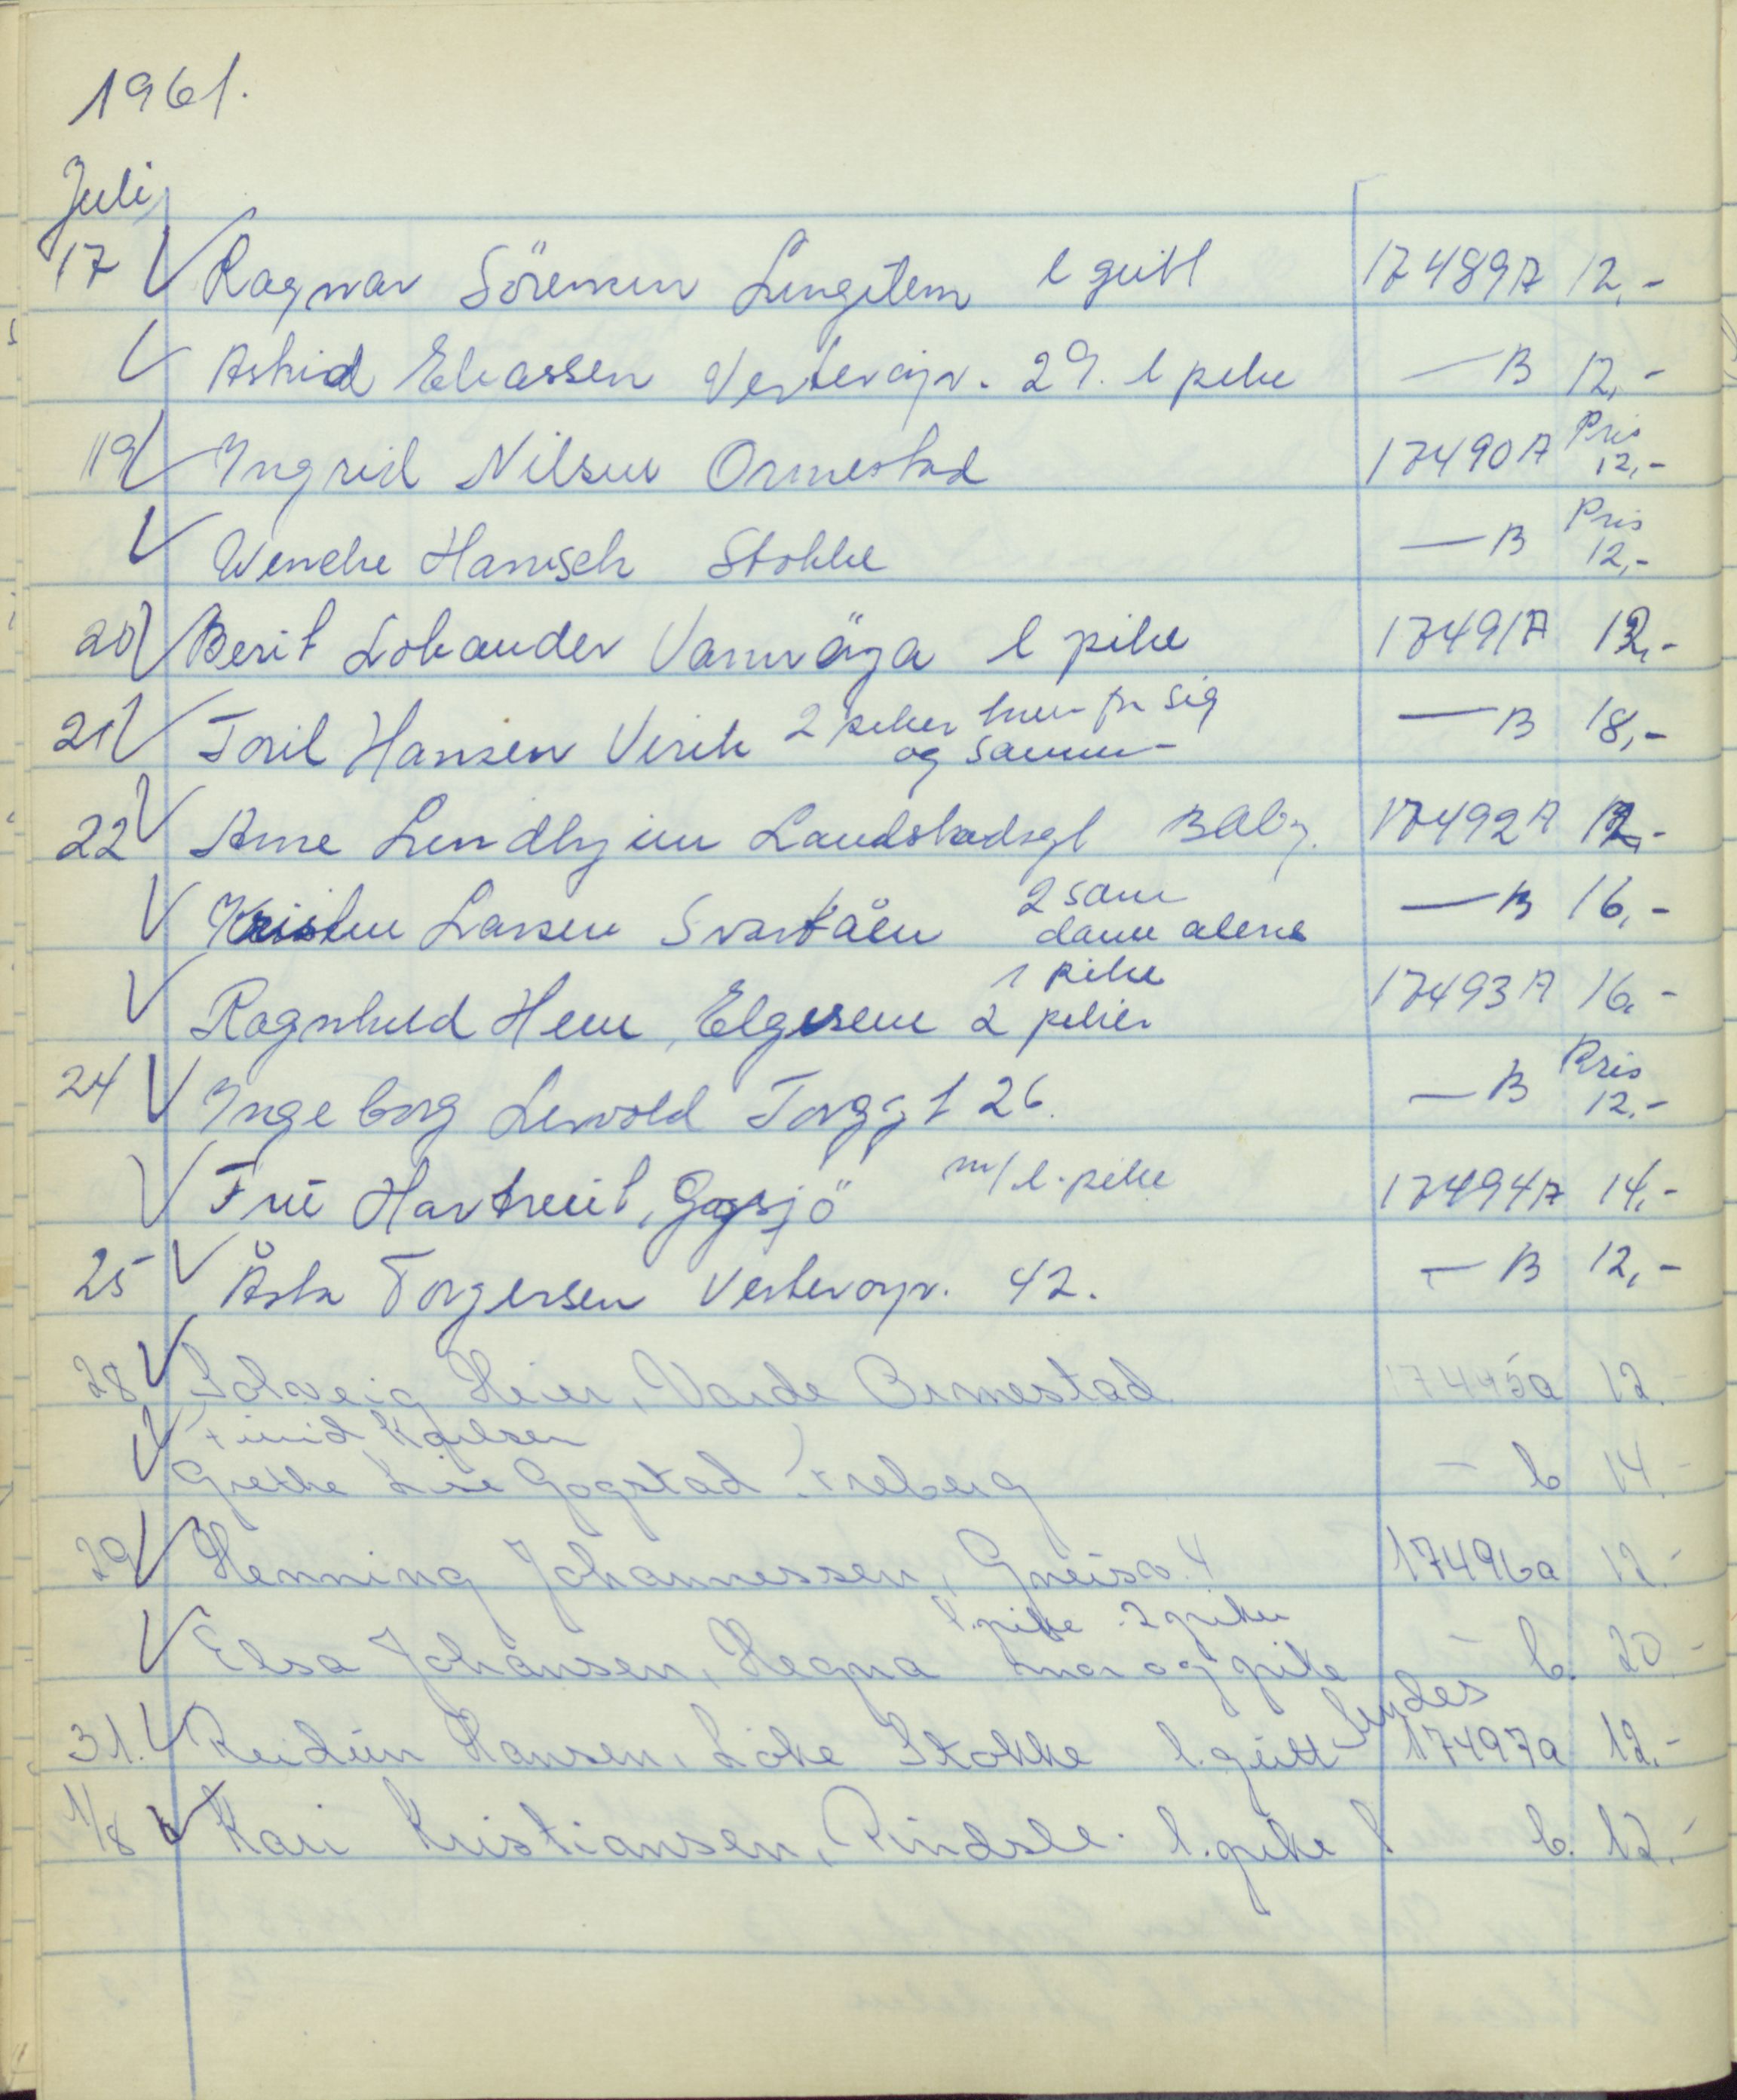 1961.
Juli
17 Ragnar Sörensen Lingelem l gutt 17489A 12,-
Astrid Eliassen Vesterøyv. 29. l pike — B 12,-
19 Ingrid Nilsen Ormestad 17490A Pris 12,-
Wenche Hanisch Stokke — B Pris 12,-
20 Berit Lokander Varnväga l pike 17491A 12,-
21 Toril Hansen Virik 2 piker hver for sig — B 18,-
og sammen
22 Arne Lindhjem Landstadsgt Baby. 17492A 12,-
2 sam
Kristine Larsen Svartåen dame alene — B 16,-
1 pike
Ragnhild Hem, Elgesem 2 piker 17493A 16,-
24 Ingeborg Lervold Torggt 26. — B Pris 12,-
Fru Hartveit, Gogsjö m/l. pike 17494A 14,-
25 Åsta Torgersen Vesterøyv. 42. — B 12,-
28 Solveig Heier, Varde Ormestad 17495a 12.-
Turid Karlsen
Grethe Lise Gogstad, Freberg — b 14.-
29 Henning Johannessen, Gneisv. 4 17496a 12.-
l. pike 2 piker
Elsa Johansen, Hegna mor og pike — b. 20.-
31. Reidun Hansen, Löke Stokke l. gutt sendes 17497a 12.-
1/8 Kari Kristiansen, Pindsle. l. pike b. 12.-